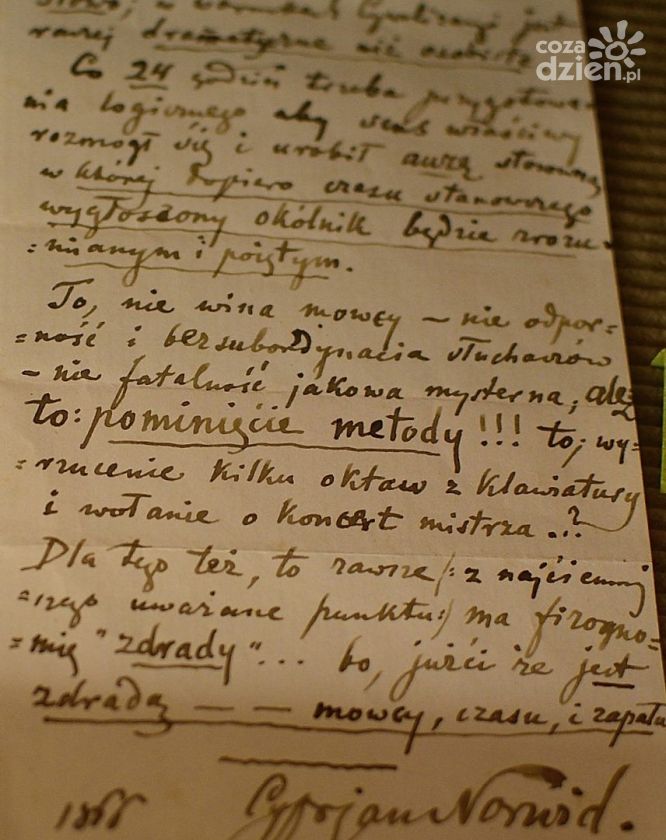 słowo, w warunkach Cywilizacji jest
raczej dramatyczne niż osobiste
Co 24 godzin trzeba przygotowa-
nia logicznego aby sens właściwy
rozmógł się i urobił auzę słowną
w której dopiero czasu stanowczego
wygłoszony okólnik będzie zrozu-
=mianym i pojętym.
To, nie wina mowcy – nie odpor-
=ność i bezsubordynacja słuchaczów
– nie fatalność jakowa mysterna; ależ
to: pominięcie metody!!! to; wy-
=rzucenie kilku oktaw z klawiatury
i wołanie o koncert mistrza..?
Dla tego też, to zawsze /: z najściemniej
=szego uważane punktu:/ ma fizogno-
=mię "zdrady"... bo, jużci że jest
zdradą – – mowcy, czasu, i zapału
1866 Cyprjan Norwid.
coza
dzien.pl